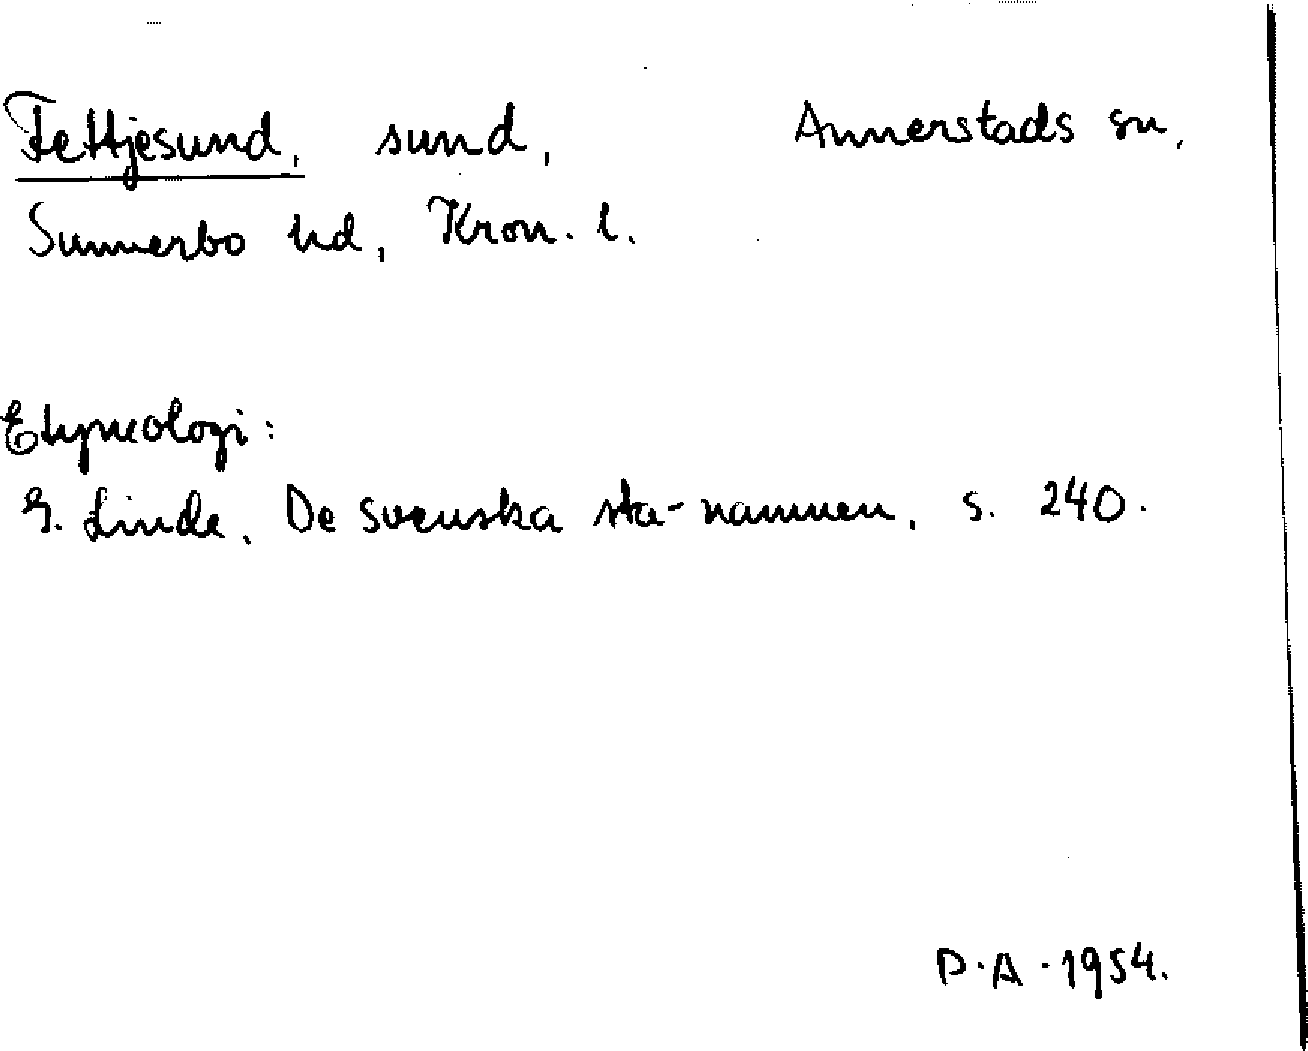 Fettjesund, sund, Annerstads sn,
Sunnerbo hd, Kron. l.
Etymologi:
G. Linde, De svenska sta-namnen, s. 240.
P.A. 1954.